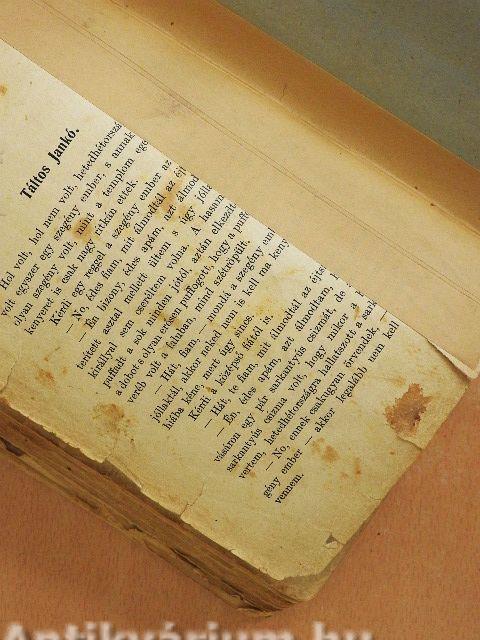 Táltos Jankó.
Hol volt, hol nem volt, hetedhétorszá
volt egyszer egy szegény ember, s annak
olyan szegény volt, mint a templom ege
kenyeret is csak nagy ritkán ettek.
Kérdi egy reggel a szegény ember az
— No, édes fiam, mit álmodtál az éj
— Én bizony, édes apám, azt álmod
terített asztal mellett ültem s úgy jólt
királlyal sem cseréltem volna. A hasam
puffadt a sok minden jótól, aztán elkezdt
a dobot s olyan erősen puffogott, hogy a puff
veréb volt a faluban, mint szétröpült.
— Hát, fiam, — mondá a szegény em
jóllaktál, akkor neked nem is kell ma keny
hiába kéne, mert úgy sincs.
Kérdi a középső fiától is.
— Hát, te fiam, mit álmodtál az éjts
— Én, édes apám, azt álmodtam,
vásáron egy pár sarkantyús csizmát, de
sarkantyús csizma volt, hogy mikor
vertem, hetedhétországra hallatszott a sark
— No, ennek csakugyan örvendek, —
gény ember — akkor legalább nem kell
vennem.
Antikvárium.hu